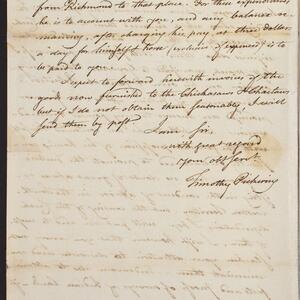 from Richmond to that place. For these expenditures,
he is to account with you, and any balance re-
maining, after charging his pay, at three dollars
a day for himself & horse (exclusive of expenses) is to
be paid to you.
I expect to forward herewith invoices of the
goods now furnished to the Chickasaws & Choctaws
but if I do not obtain them seasonably, I will
send them by post.
I am Sir,
with great regard
your obt. servt.
Timothy Pickering